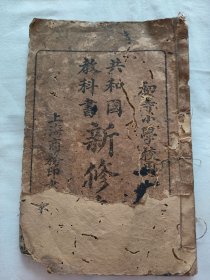 初等小學校用
共和國
教科書
新修
上海商務印